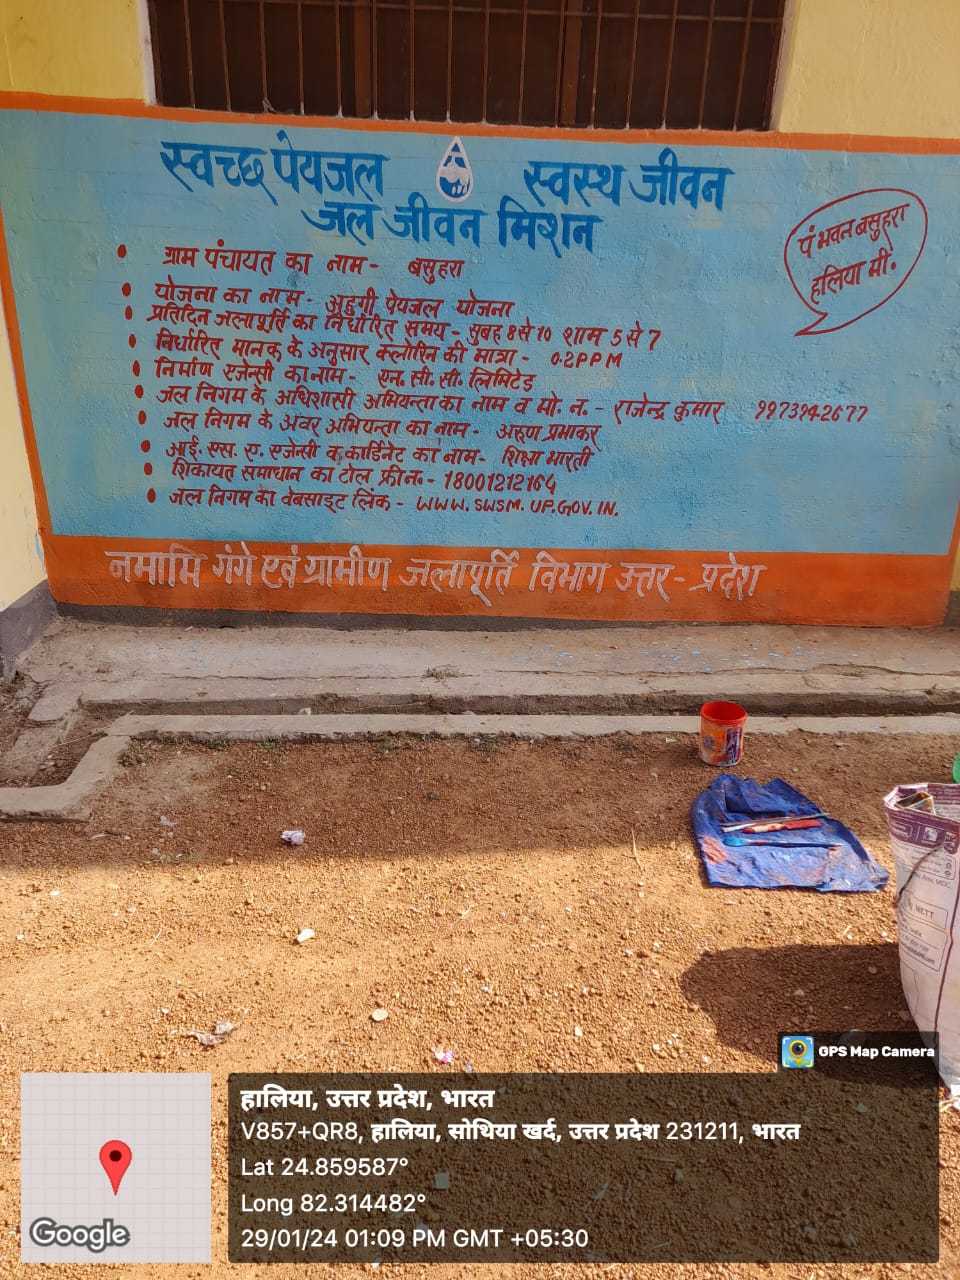 स्वच्छ पेयजल स्वस्थ जीवन
जल जीवन मिशन
पं भवन बसुहरा
हलिया मी.
• ग्राम पंचायत का नाम - बसुहरा
• योजना का नाम - अहुगी पेयजल योजना
• प्रतिदिन जलापूर्ति का निर्धारित समय - सुबह 8 से 10 शाम 5 से 7
• निर्धारित मानक के अनुसार क्लोरिन की मात्रा - 0.2PPM
• निर्माण एजेन्सी का नाम - एन. सी. सी. लिमिटेड
• जल निगम के अधिशासी अभियन्ता का नाम व मो. न. - राजेन्द्र कुमार
• जल निगम के अवर अभियन्ता का नाम - अरुण प्रभाकर
• आई. एस. ए. एजेन्सी व कार्डिनेट का नाम - शिक्षा भारती
• शिकायत समाधान का टोल फ्री न. - 18001212164
• जल निगम का वेबसाइट लिंक - WWW. SWSM. UP. GOV. IN.
नमामि गंगे एवं ग्रामीण जलापूर्ति विभाग उत्तर - प्रदेश
METT
GPS Map Camera
हालिया, उत्तर प्रदेश, भारत
V857+QR8, हालिया, सोथिया खर्द, उत्तर प्रदेश 231211, भारत
Lat 24.859587°
Long 82.314482°
29/01/24 01:09 PM GMT +05:30
Google